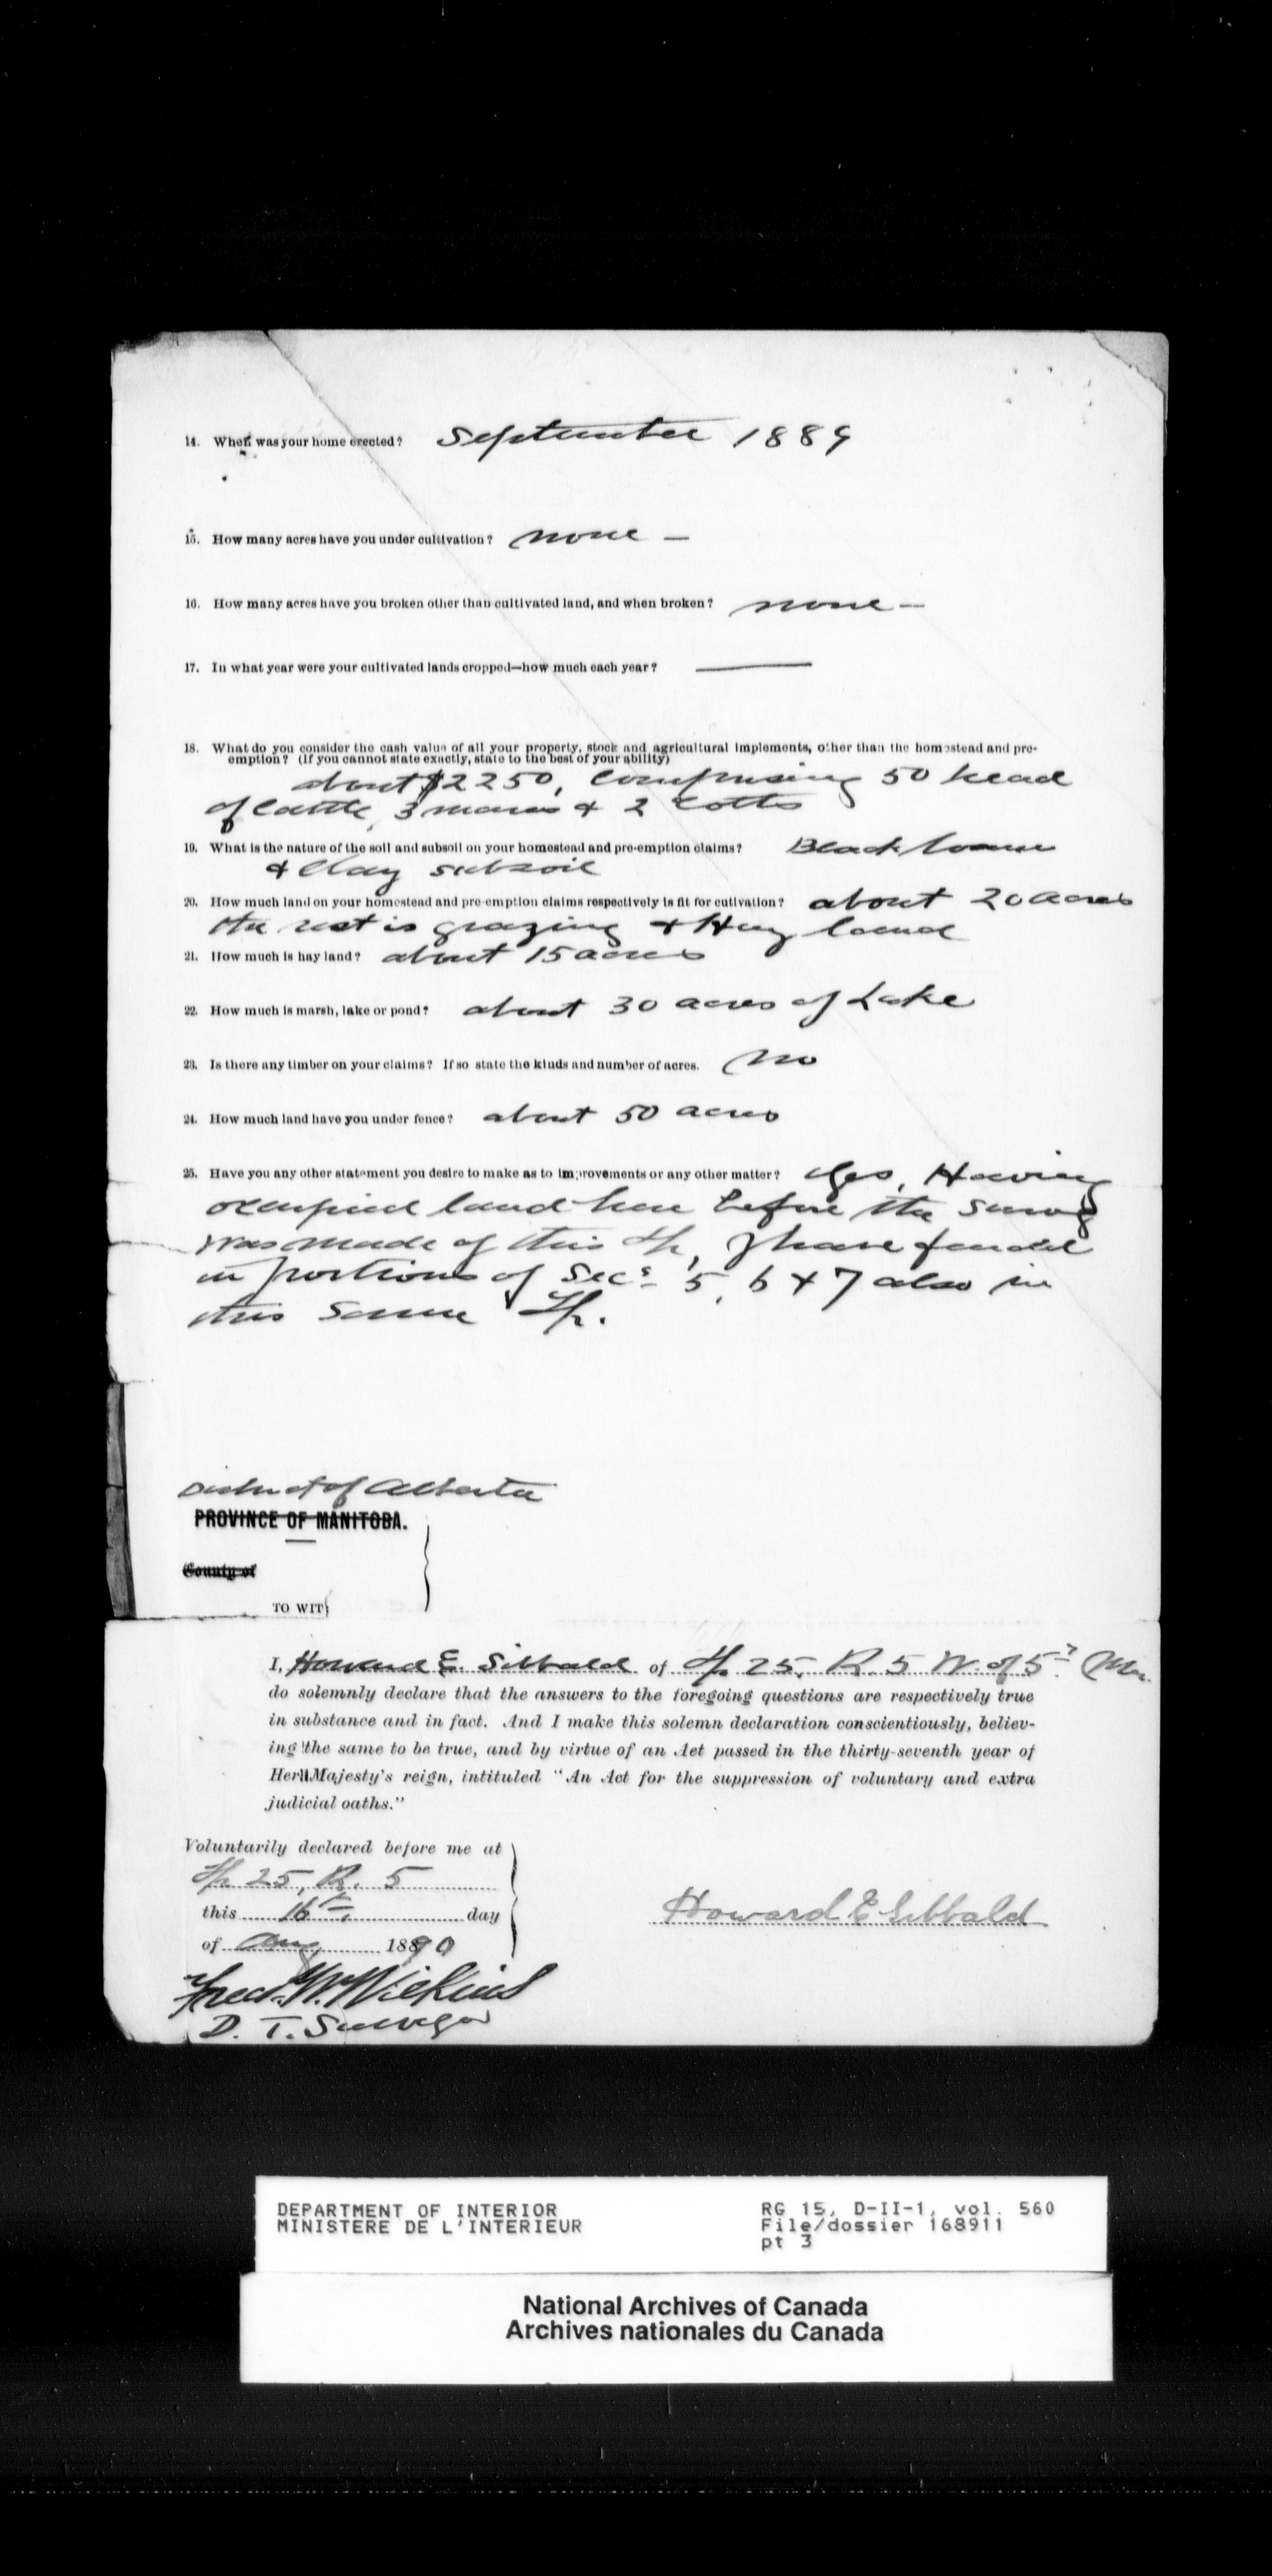 14. When was your home erected? September 1889
15. How many acres have you under cultivation? none —
16. How many acres have you broken other than cultivated land, and when broken? none —
17. In what year were your cultivated lands cropped—how much each year? —
18. What do you consider the cash value of all your property, stock and agricultural implements, other than the homestead and pre-
emption? (If you cannot state exactly, state to the best of your ability)
about $2250, comprising 50 head
of cattle, 3 mares & 2 colts
19. What is the nature of the soil and subsoil on your homestead and pre-emption claims? Black loam
& clay subsoil
20. How much land on your homestead and pre-emption claims respectively is fit for cutivation? about 20 acres
the rest is grazing & Hay land
21. How much is hay land? about 15 acres
22. How much is marsh, lake or pond? about 30 acres of Lake
23. Is there any timber on your claims? If so state the kinds and number of acres. No
24. How much land have you under fence? about 50 acres
25. Have you any other statement you desire to make as to improvements or any other matter? Yes, Having
occupied land here before the survey
was made of this Tp, I have fenced
in portions of Secs 5, 6 & 7 also in
this same Tp.
District of Alberta
PROVINCE OF MANITOBA.
County of
TO WIT:
I, Howard E. Sibbald of Tp 25, R. 5 W. of 5th Mer.
do solemnly declare that the answers to the foregoing questions are respectively true
in substance and in fact. And I make this solemn declaration conscientiously, believ-
ing the same to be true, and by virtue of an Act passed in the thirty-seventh year of
Her Majesty's reign, intituled "An Act for the suppression of voluntary and extra
judicial oaths."
Voluntarily declared before me at
Tp 25, R. 5
this 16th day
of Aug 1890
Howard E Sibbald
Fred. W. Wilkins
D. T. Surveyor
DEPARTMENT OF INTERIOR
MINISTERE DE L'INTERIEUR
RG 15, D-II-1, vol. 560
File/dossier 168911
pt 3
National Archives of Canada
Archives nationales du Canada